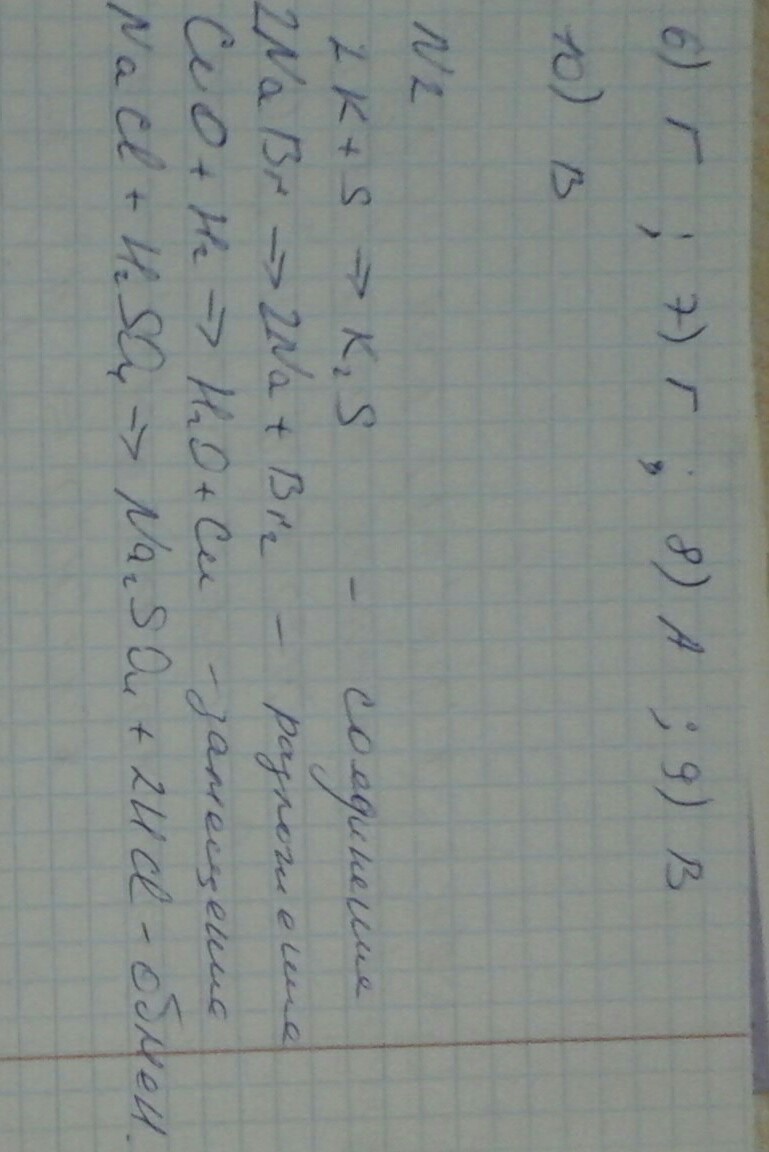 6) Г ; 7) Г ; 8) А ; 9) В
10) В
N2
2K + S → K₂S - соединения
2NaBr → 2Na + Br₂ - разложения
CuO + H₂ → H₂O + Cu - замещения
NaCl + H₂SO₄ → Na₂SO₄ + 2HCl - обмен.